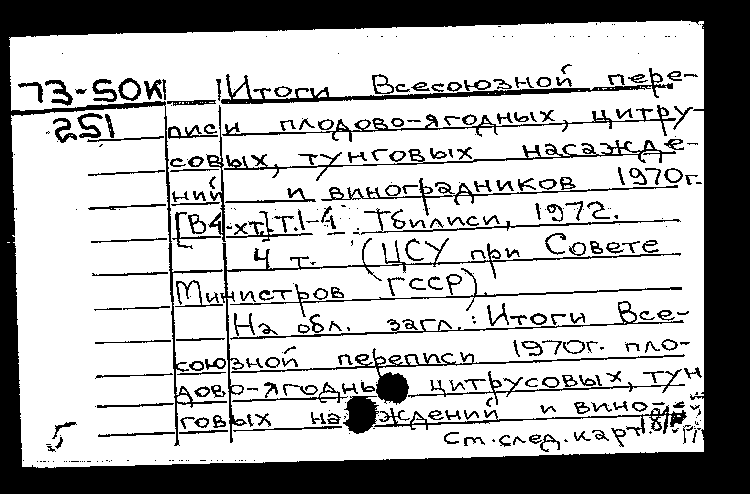 73-50К Итоги Всесоюзной пере-
251 писи плодово-ягодных, цитру-
совых, тунговых насажде-
ний и виноградников 1970г.
[В4-хт.] Т.1-4 Тбилиси, 1972.
4 т. (ЦСУ при Совете
Министров ГССР).
На обл. загл.: Итоги Все-
союзной переписи 1970г. пло-
дово-ягодны цитрусовых, тун
говых на ждений и вино-
5 ст. след. карт